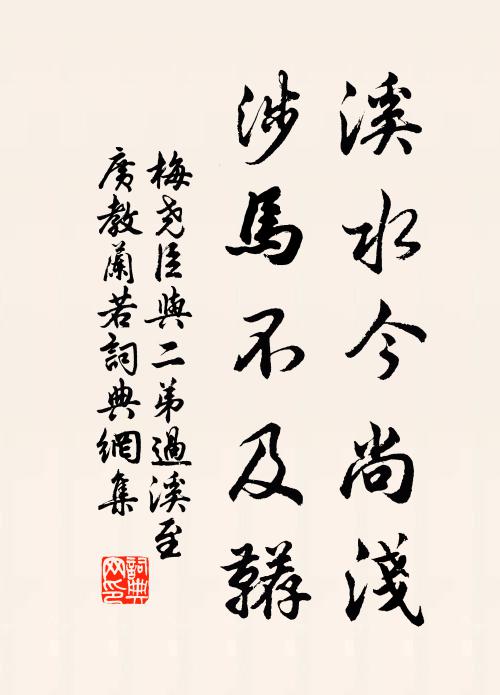 溪水今尚淺
涉馬不及韉
梅堯臣與二弟過溪至
廣教蘭若詞典網集
詞典
网印